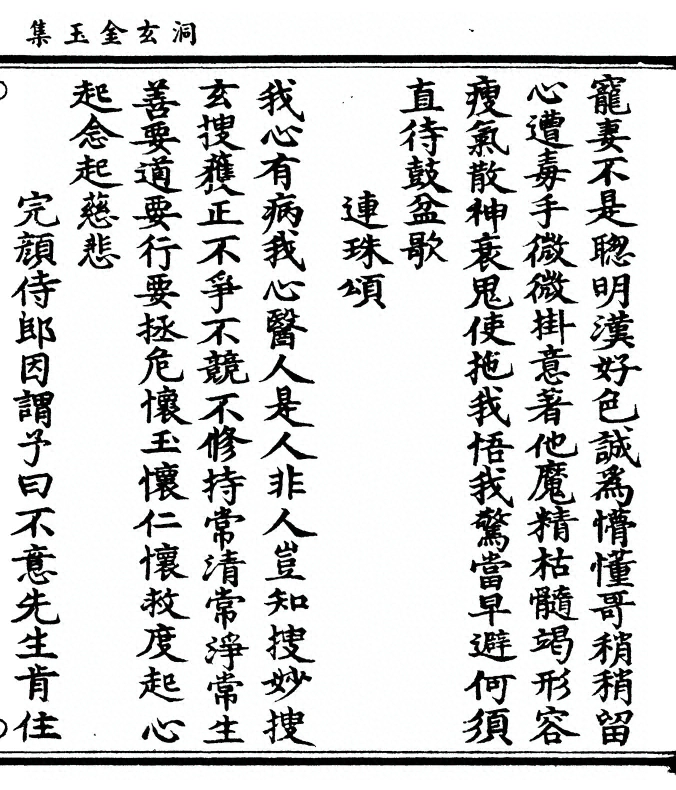 洞玄金玉集
寵妻不是聰明漢好色誠爲懵懂哥稍稍留
心遭毒手微微掛意著他魔精枯髓竭形容
瘦氣散神衰鬼使拖我悟我驚當早避何須
直待鼓盆歌
連珠頌
我心有病我心醫人是人非人豈知搜妙搜
玄搜獲正不爭不競不修持常清常淨常生
善要道要行要拯危懷玉懷仁懷救度起心
起念起慈悲
完顔侍郎因謂予曰不意先生肯住